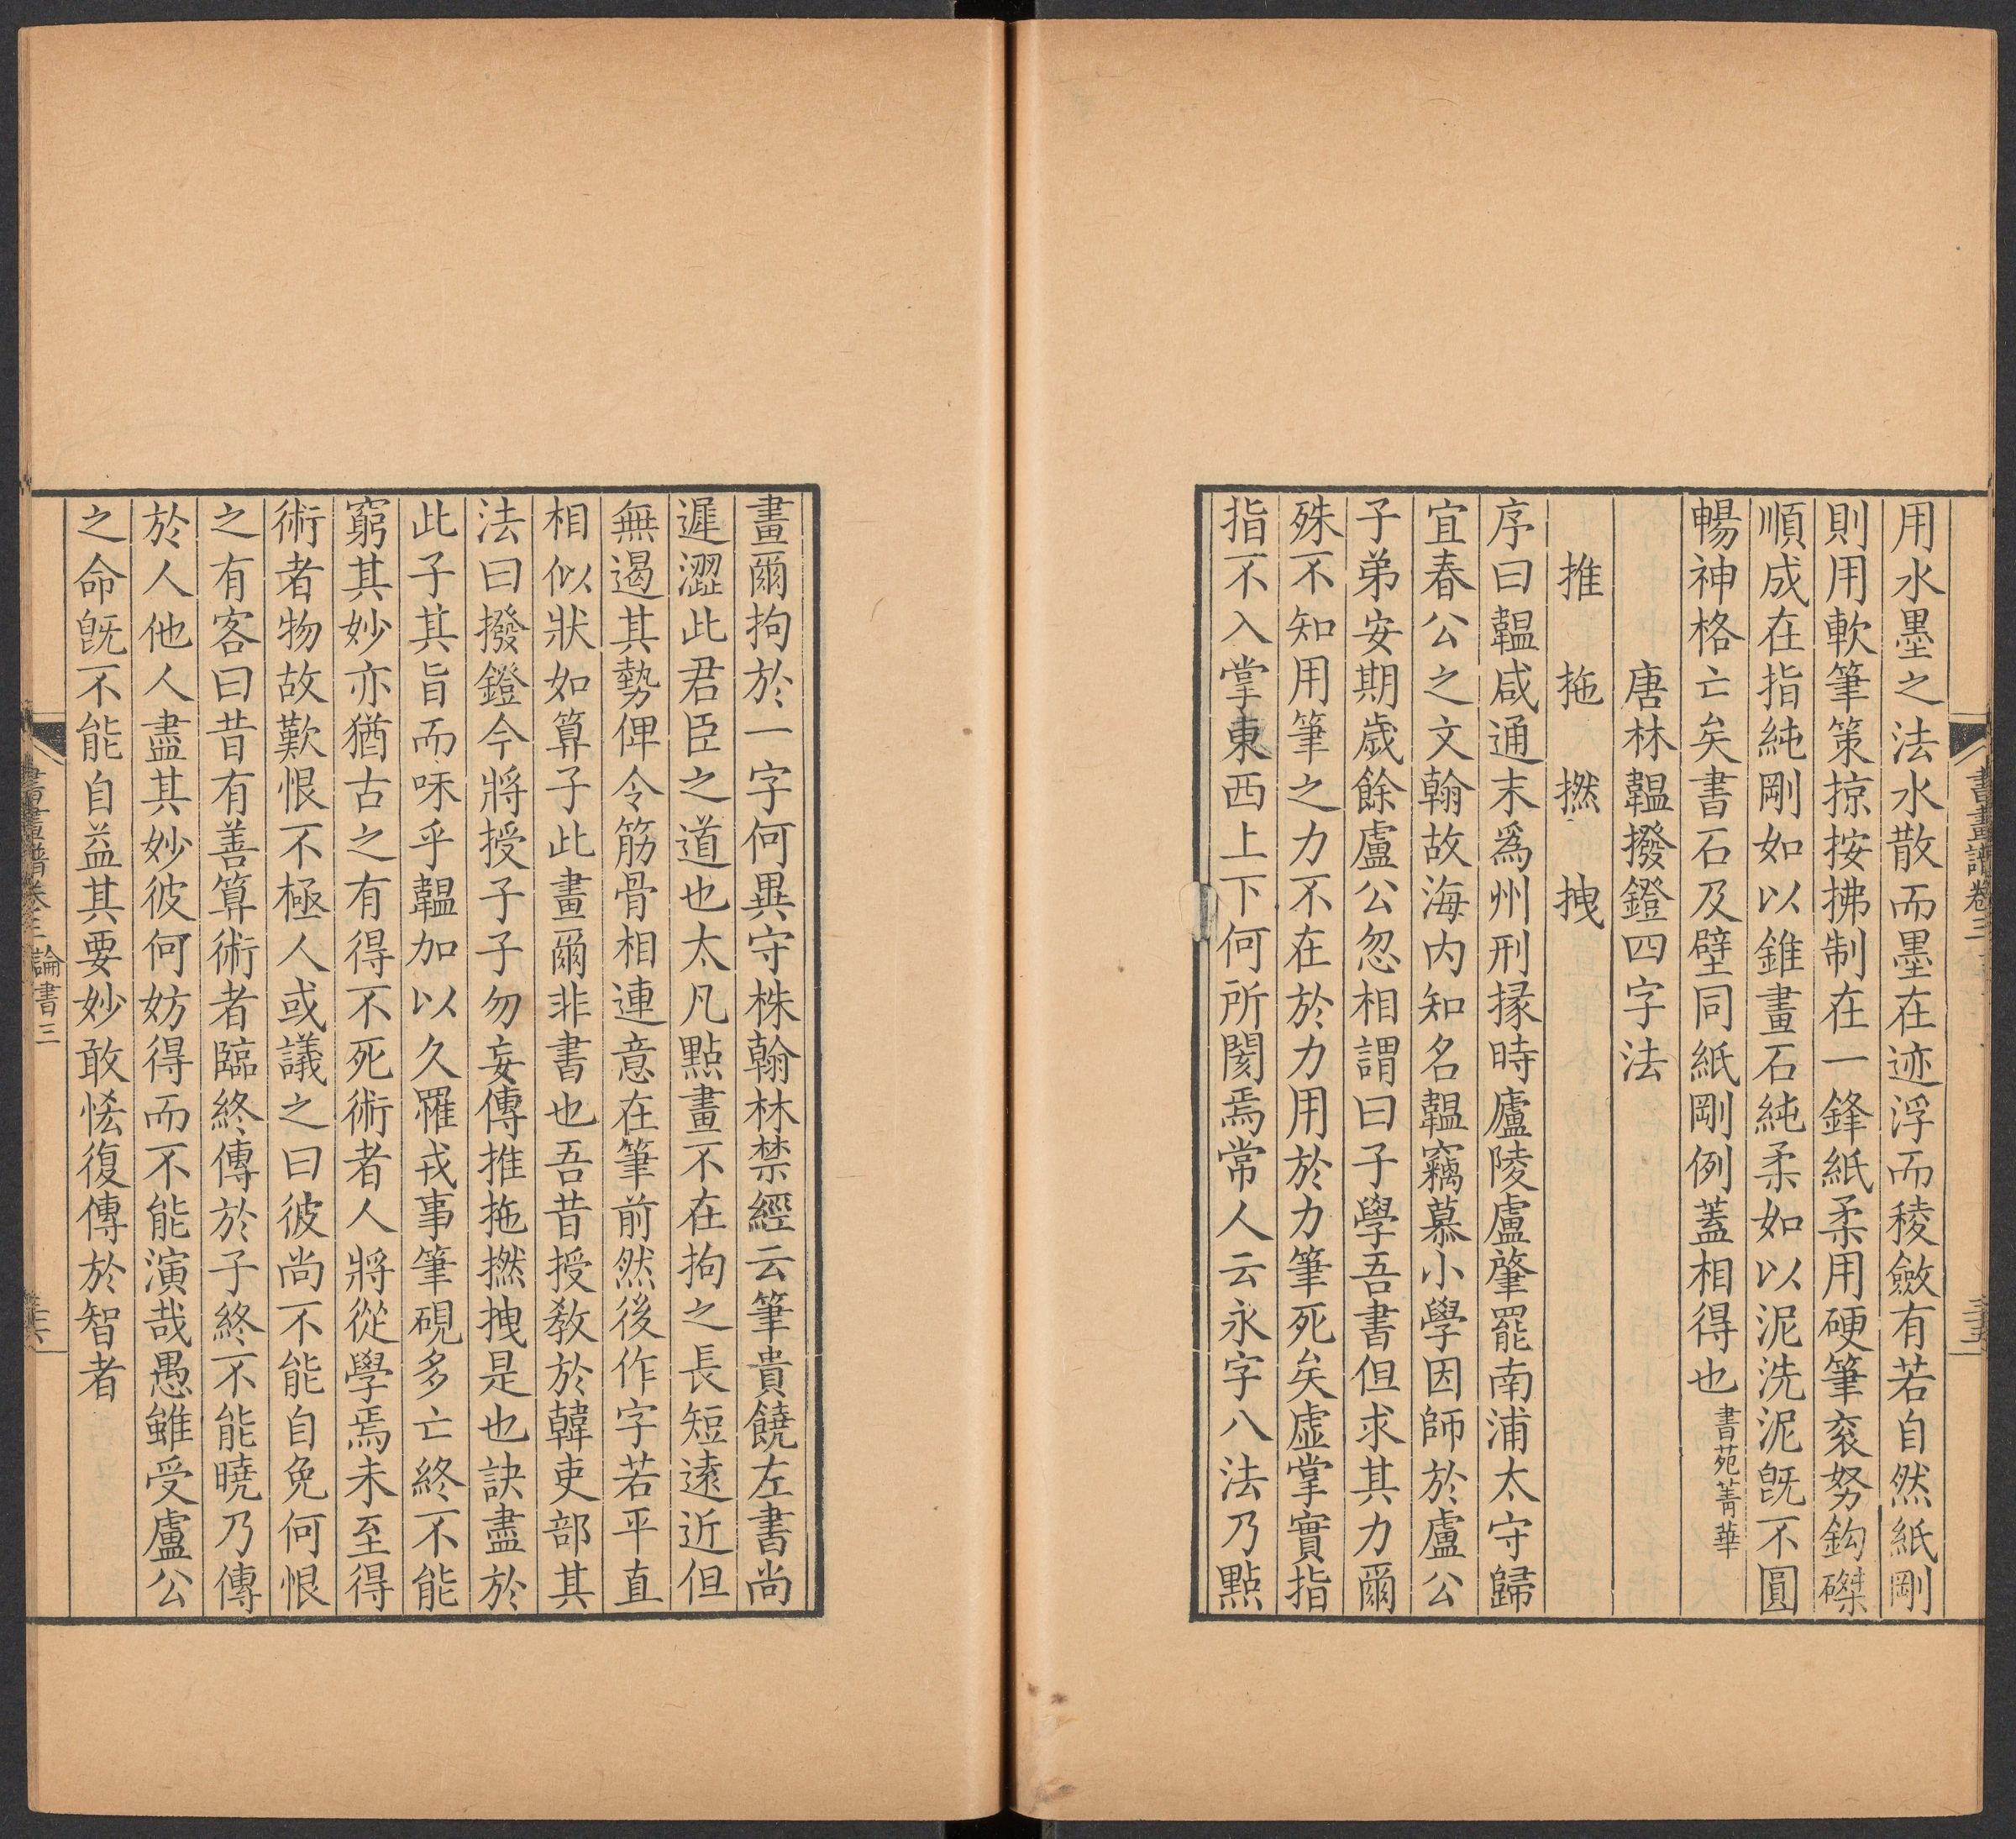 用水墨之法水散而墨在迹浮而稜斂有若自然紙剛
則用軟筆策掠按拂制在一鋒紙柔用硬筆衮努鈎磔
順成在指純剛如以錐畫石純柔如以泥洗泥旣不圓
暢神格亡矣書石及壁同紙剛例蓋相得也書苑菁華
唐林韞撥鐙四字法
推拖撚拽
序曰韞咸通末爲州刑掾時廬陵盧肇罷南浦太守歸
宜春公之文翰故海内知名韞竊慕小學因師於盧公
子弟安期歲餘盧公忽相謂曰子學吾書但求其力爾
殊不知用筆之力不在於力用於力筆死矣虛掌實指
指不入掌東西上下何所閡焉常人云永字八法乃點
畫爾拘於一字何異守株翰林禁經云筆貴饒左書尚
遲澀此君臣之道也太凡點畫不在拘之長短遠近但
無遏其勢俾令筋骨相連意在筆前然後作字若平直
相似狀如算子此畫爾非書也吾昔授敎於韓吏部其
法曰撥鐙今將授子子勿妄傳推拖撚拽是也訣盡於
此子其旨而味乎韞加以久罹戎事筆硯多亡終不能
窮其妙亦猶古之有得不死術者人將從學焉未至得
術者物故歎恨不極人或議之曰彼尚不能自免何恨
之有客曰昔有善算術者臨終傳於子終不能曉乃傳
於人他人盡其妙彼何妨得而不能演哉愚雖受盧公
之命旣不能自益其要妙敢悋復傳於智者
書畫譜卷三
論書三